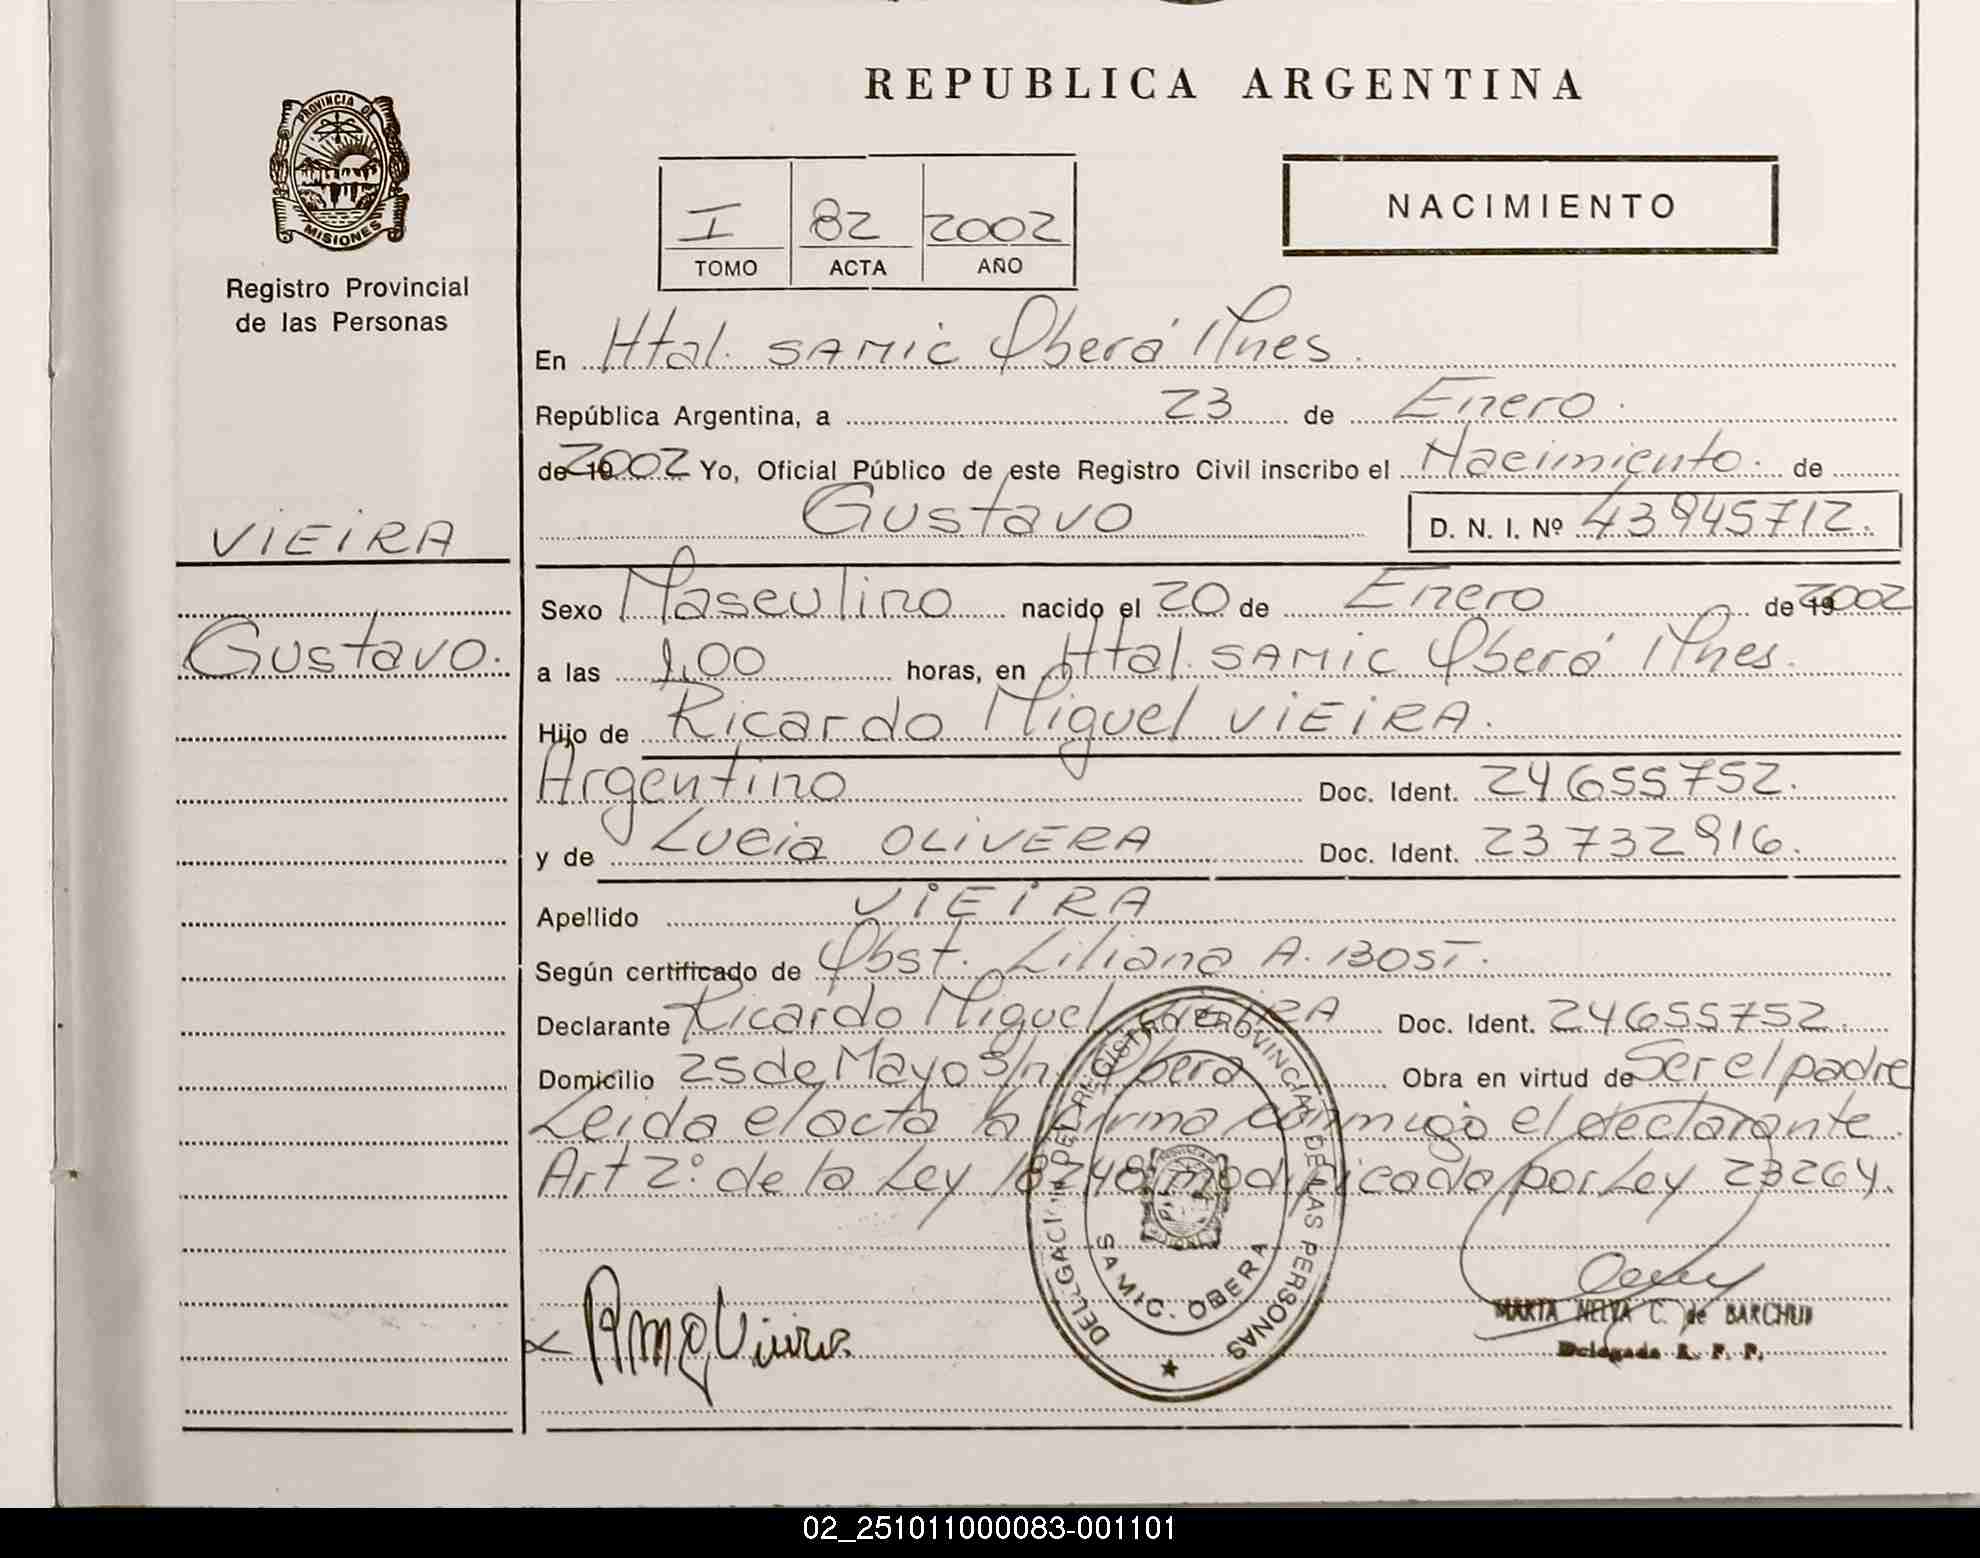 REPUBLICA ARGENTINA
PROVINCIA DE
MISIONES
Registro Provincial
de las Personas
I 82 2002
TOMO ACTA AÑO
NACIMIENTO
En Htal. SAMIC Oberá Mnes.
República Argentina, a 23 de Enero.
de 19 2002 Yo, Oficial Público de este Registro Civil inscribo el Nacimiento. de
Gustavo D. N. I. Nº 43945712.
VIEIRA
Gustavo.
Sexo Masculino nacido el 20 de Enero de 19 2002
a las 1,00 horas, en Htal. SAMIC Oberá Mnes.
Hijo de Ricardo Miguel VIEIRA.
Argentino Doc. Ident. 24655752.
y de Lucia OLIVERA Doc. Ident. 23732916.
Apellido VIEIRA
Según certificado de Obst. Liliana A. BOST.
Declarante Ricardo Miguel VIEIRA Doc. Ident. 24655752.
Domicilio 25 de Mayo S/n. Oberá Obra en virtud de Ser el padre
Leida el acta la firma conmigo el declarante.
Art 2º de la Ley 18248 modificada por Ley 23264.
DELEGACION DEL REGISTRO PROVINCIAL DE LAS PERSONAS
SAMIC. OBERA
MARTA NELVA C. de BARCHUK
Delegada R. P. P.
02_251011000083-001101